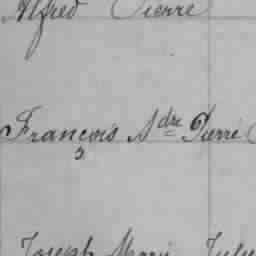 Alfred Pierre
François Adre Pierre
Joseph Marie Jules